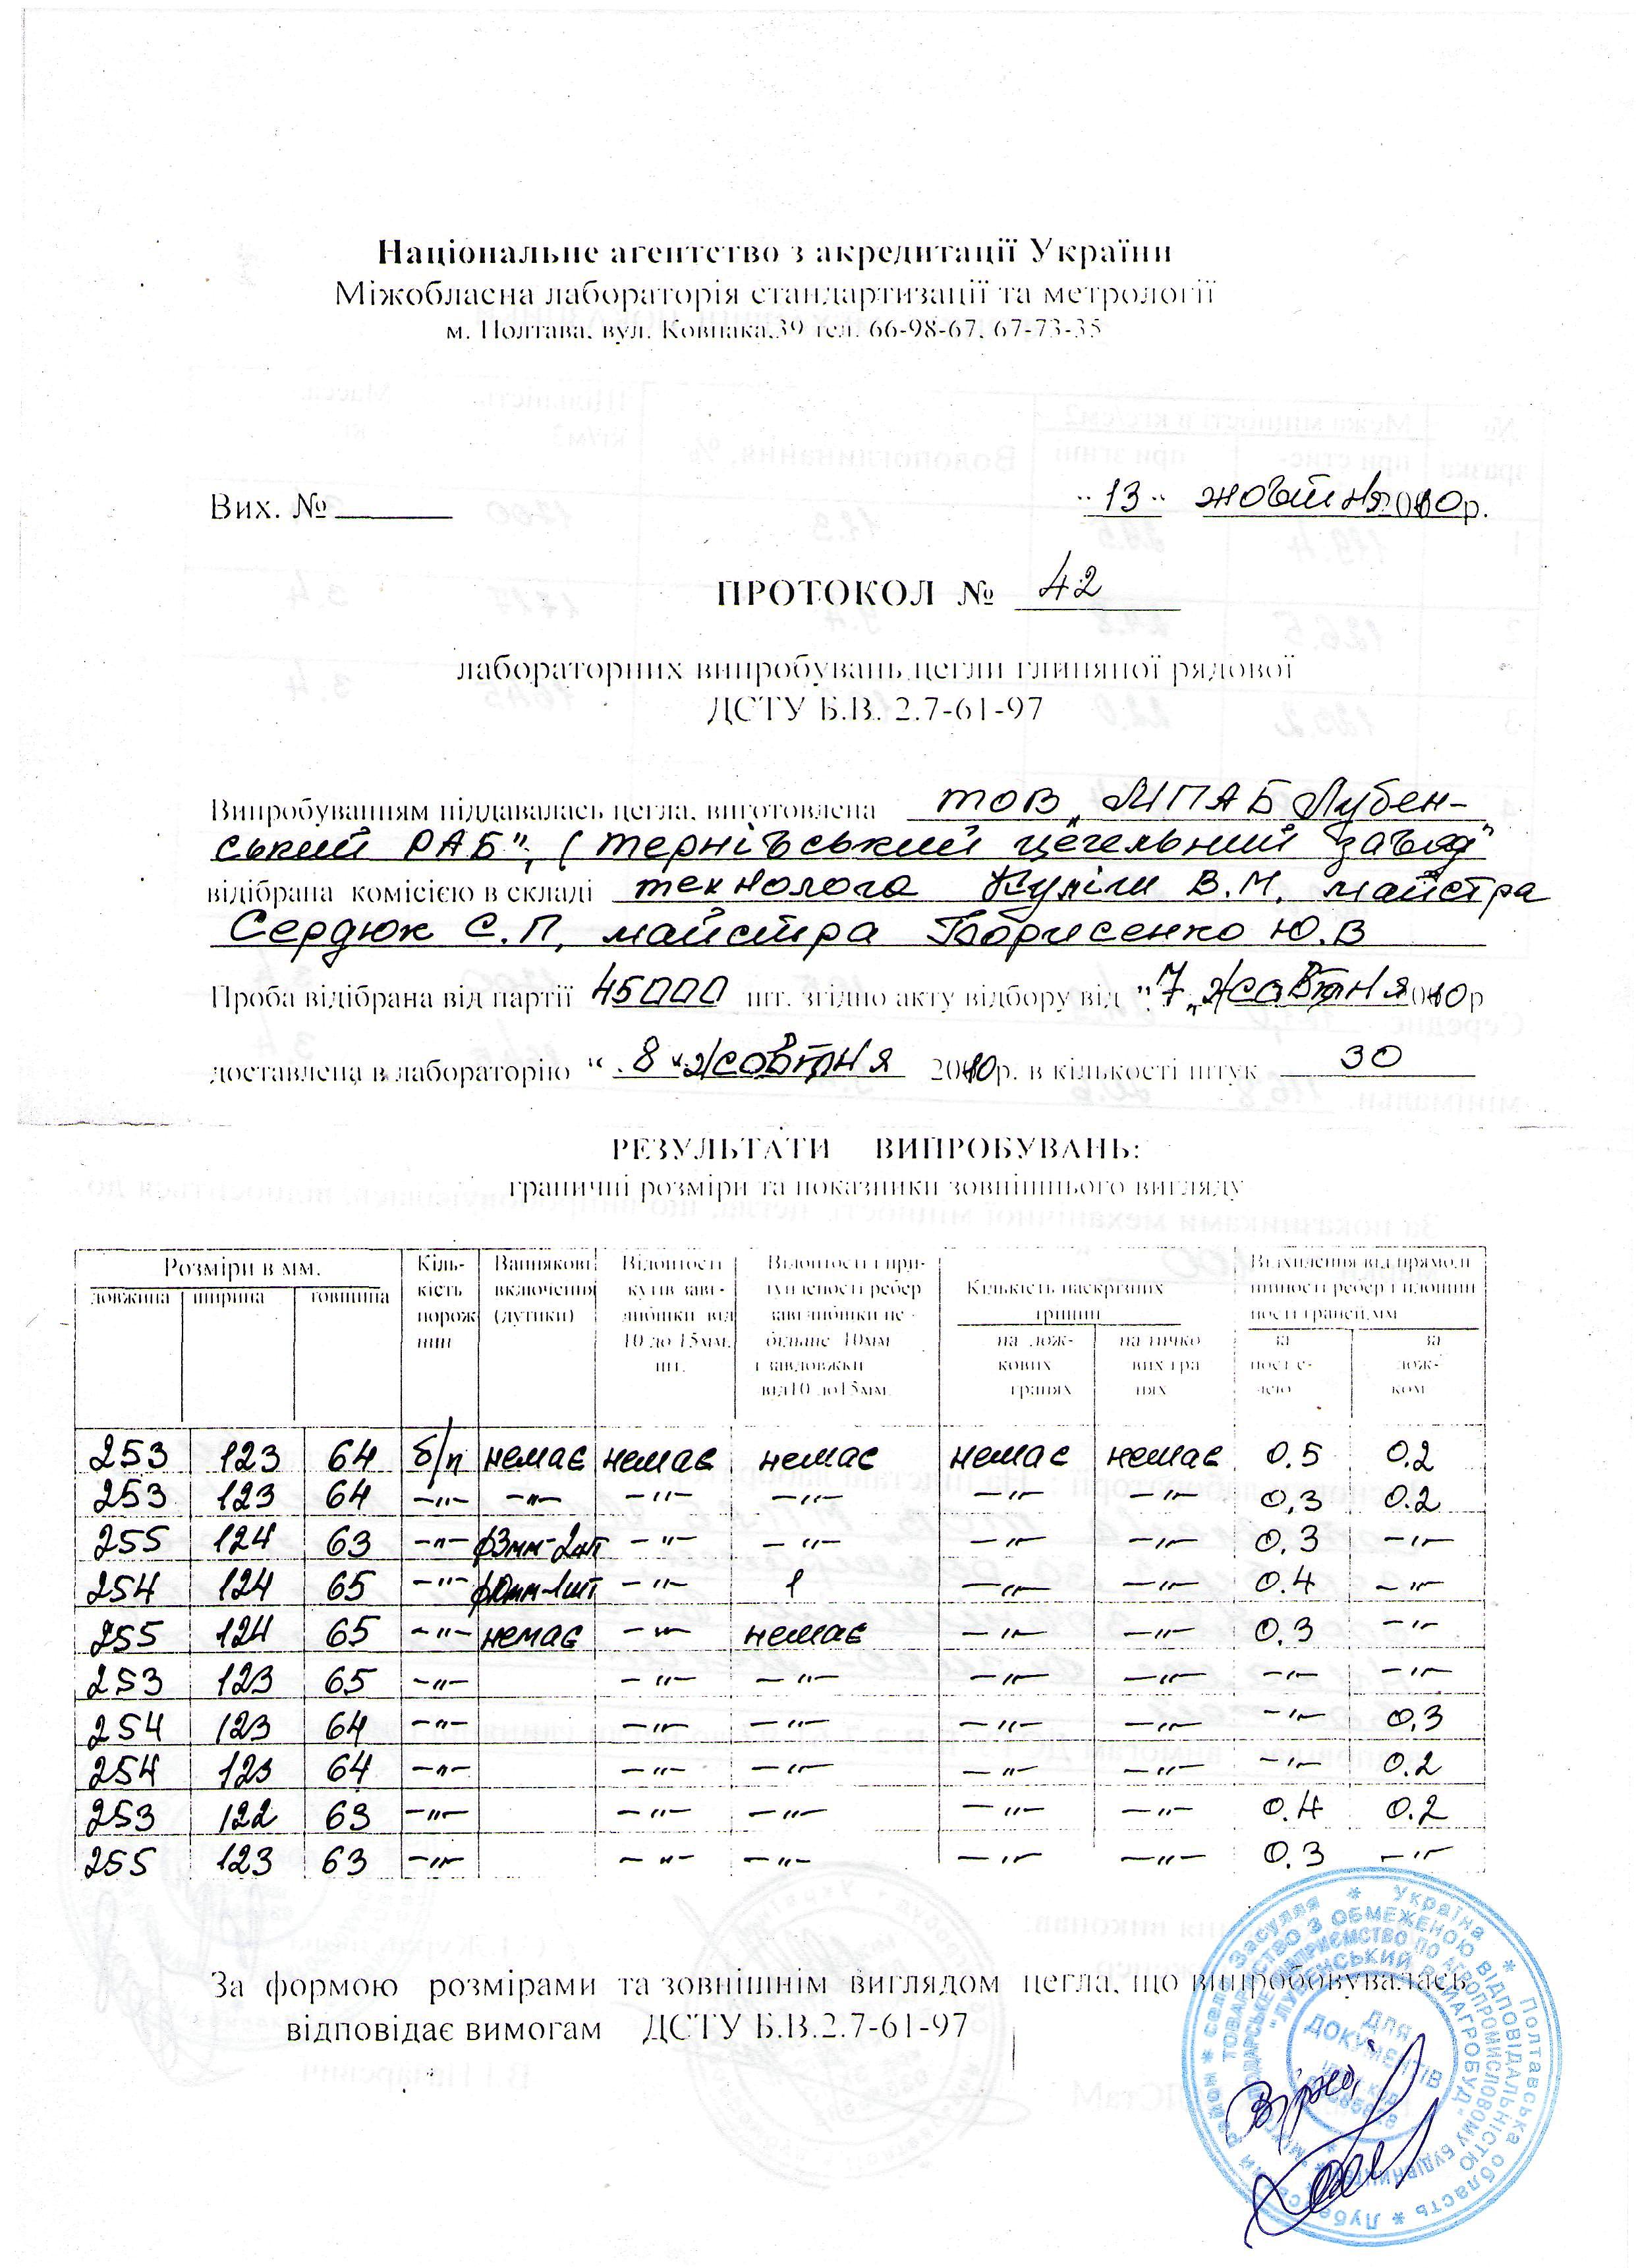 Національне агентство з акредитації України
Міжобласна лабораторія стандартизації та метрології
м. Полтава, вул. Ковпака,39 тел. 66-98-67, 67-73-35
Вих. № "13" жовтня 2010р.
ПРОТОКОЛ № 42
лабораторних випробувань цегли глиняної рядової
ДСТУ Б.В. 2.7-61-97
Випробуванням піддавалась цегла, виготовлена ТОВ „МПАБ Лубен-
ський РАБ", (Тернівський цегельний завод"
відібрана комісією в складі технолога В.М, майстра
Сердюк С.П, майстра Борисенко Ю.В
Проба відібрана від партії 45000 шт. згідно акту відбору від "7" жовтня 2010р
доставлена в лабораторію "8" жовтня 2010р. в кількості штук 30
РЕЗУЛЬТАТИ ВИПРОБУВАНЬ:
граничні розміри та показники зовнішнього вигляду
Розміри в мм. Кіль- Вапнякові Відбитості Відбитості і при- Кількість наскрізних Відхилення від прямолі
довжина ширина товщина кість включення кутів зав- тупленості ребер тріщин нійності ребер і площин
порож (дутики) глибшки від завглибшки не ності граней,мм
нин 10 до 15мм, більше 10мм на лож- на тичко за за
шт. і завдовжки кових вих гра пост е- лож-
від10 до15мм. гранях нях лею ком
253 123 64 б/п немає немає немає немає немає 0.5 0.2
253 123 64 -"- -"- -"- -"- -"- -"- 0,3 0.2
255 124 63 -"- ф3мм-2шт -"- -"- -"- -"- 0.3 -"-
254 124 65 -"- -1шт -"- 1 -"- -"- 0.4 -"-
255 124 65 -"- немає -"- немає -"- -"- 0.3 -"-
253 123 65 -"- -"- -"- -"- -"- -"- -"-
254 123 64 -"- -"- -"- -"- -"- -"- 0,3
254 123 64 -"- -"- -"- -"- -"- -"- 0.2
253 122 63 -"- -"- -"- -"- -"- 0.4 0.2
255 123 63 -"- -"- -"- -"- -"- 0.3 -"-
За формою розмірами та зовнішнім виглядом цегла, що випробовувалась
відповідає вимогам ДСТУ Б.В.2.7-61-97
Україна * Полтавська область * Лубенський район * село Засулля *
ТОВАРИСТВО З ОБМЕЖЕНОЮ ВІДПОВІДАЛЬНІСТЮ
ПІДПРИЄМСТВО ПО АГРОПРОМИСЛОВОМУ БУДІВНИЦТВУ
"ЛУБЕНСЬКИЙ РАЙАГРОБУД"
ДЛЯ
ДОКУМЕНТІВ
Вірно,